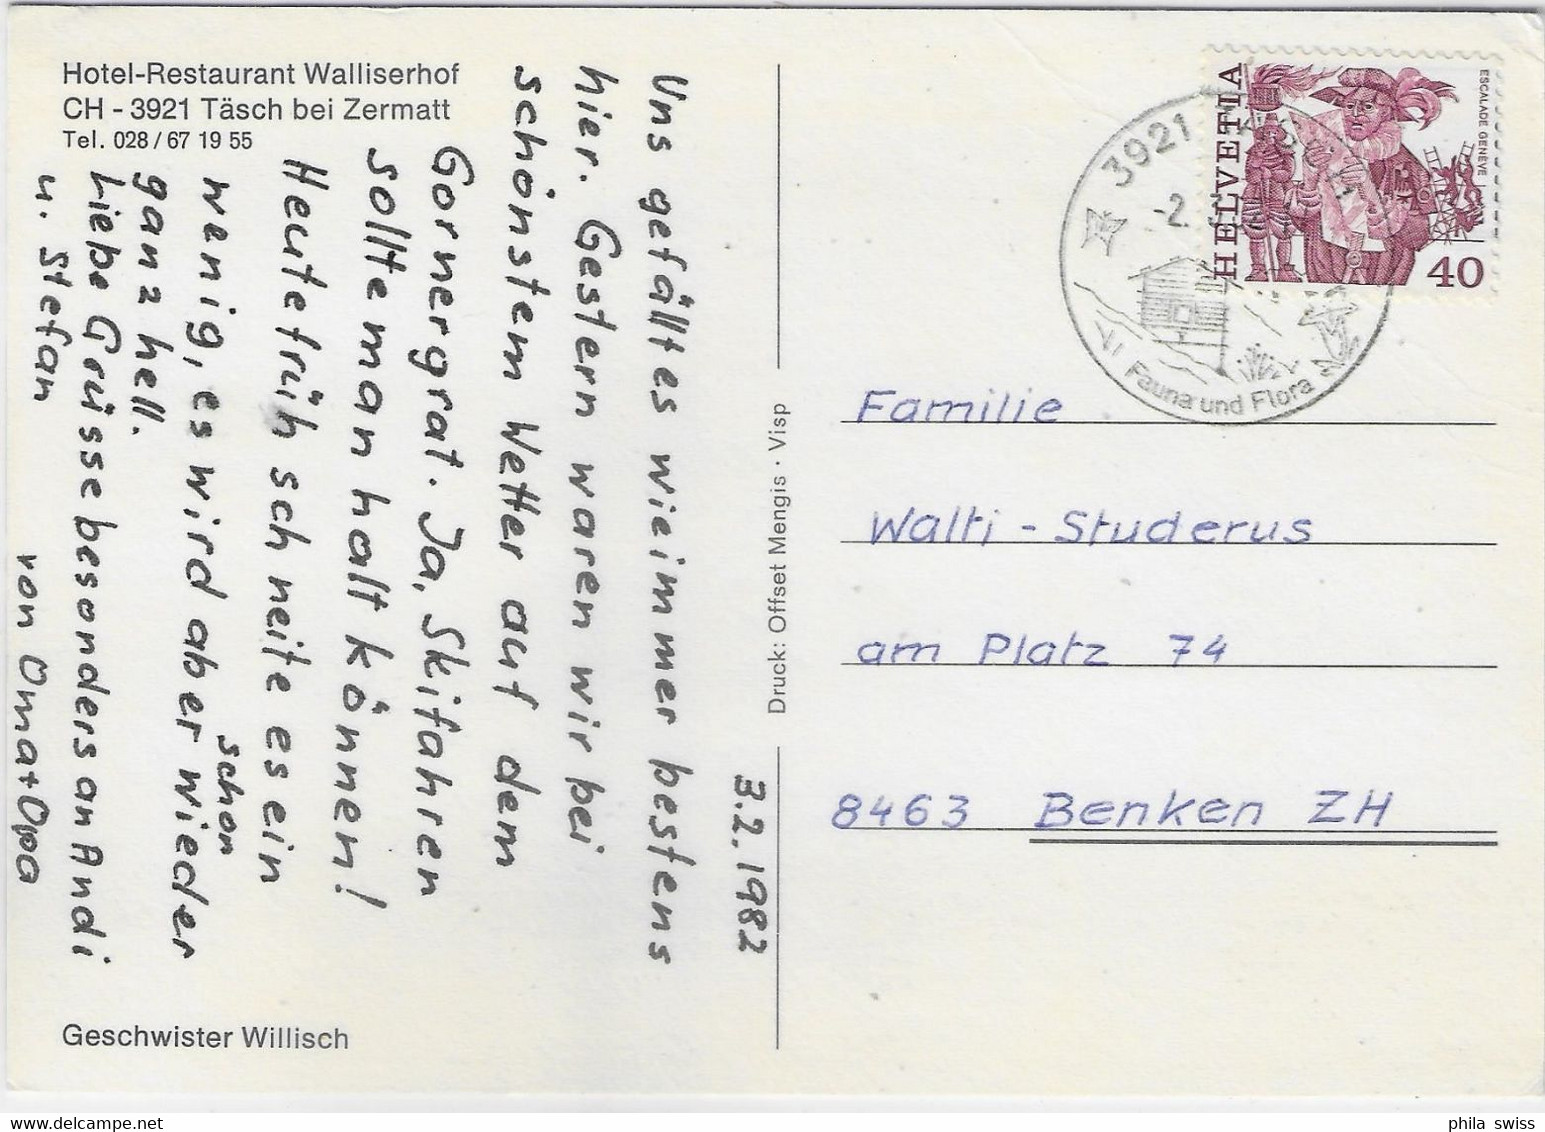 Hotel-Restaurant Walliserhof
CH - 3921 Täsch bei Zermatt
Tel. 028/67 19 55
3.2.1982
Uns gefällt es wie immer bestens
hier. Gestern waren wir bei
schönstem Wetter auf dem
Gornergrat. Ja, Skifahren
sollte man halt können!
Heute früh schneite es ein
wenig, es wird aber wieder
schon
ganz hell.
Liebe Grüsse besonders an Andi
u. Stefan
von Oma + Opa
Geschwister Willisch
Druck: Offset Mengis · Visp
HELVETIA
ESCALADE GENÈVE
40
3921
-2.
Fauna und Flora
Familie
Walti - Studerus
am Platz 74
8463 Benken ZH
phila swiss